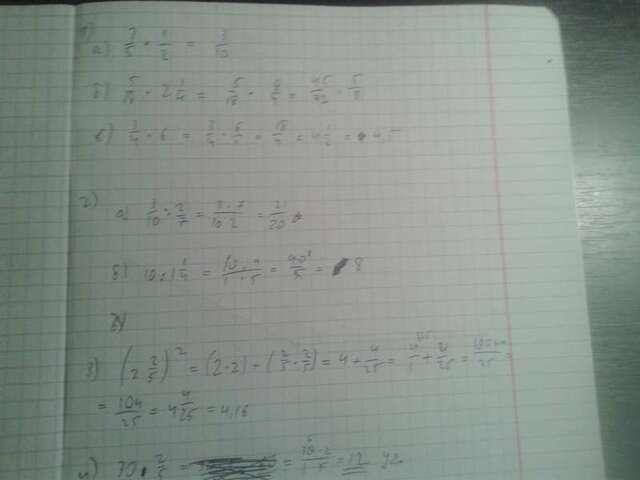 1)
а) 3/5 · 1/2 = 3/10
б) 5/18 · 2 1/4 = 5/18 · 9/4 = 45/72 = 5/8
в) 3/4 · 6 = 3/4 · 6/1 = 18/4 = 4 1/2 = 4,5
2)
а) 3/10 : 2/7 = 3·7/10·2 = 21/20
б) 10 : 1 1/4 = 10·4/1·5 = 40/5 = 8
в)
3) (2 2/5)² = (2·2) + (2/5 · 2/5) = 4 + 4/25 = 4/1 + 4/25 =
= 104/25 = 4 4/25 = 4,16
4) 30 · 2/5 = = 30·2/1·5 = 12